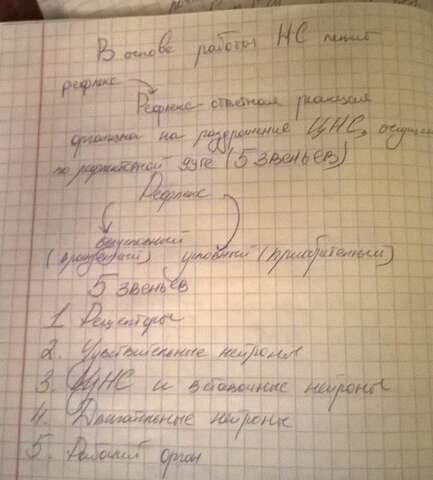 В основе работы НС лежит
рефлекс
Рефлекс-ответная реакция
организма на раздражение ЦНС, осущ
по рефлекторной дуге (5 звеньев)
Рефлекс
безусловный
(врожденный) условный (приобретенный)
5 звеньев
1 Рецепторы
2. Чувствительные нейроны
3. ЦНС и вставочные нейроны
4. Двигательные нейроны
5. Рабочий орган